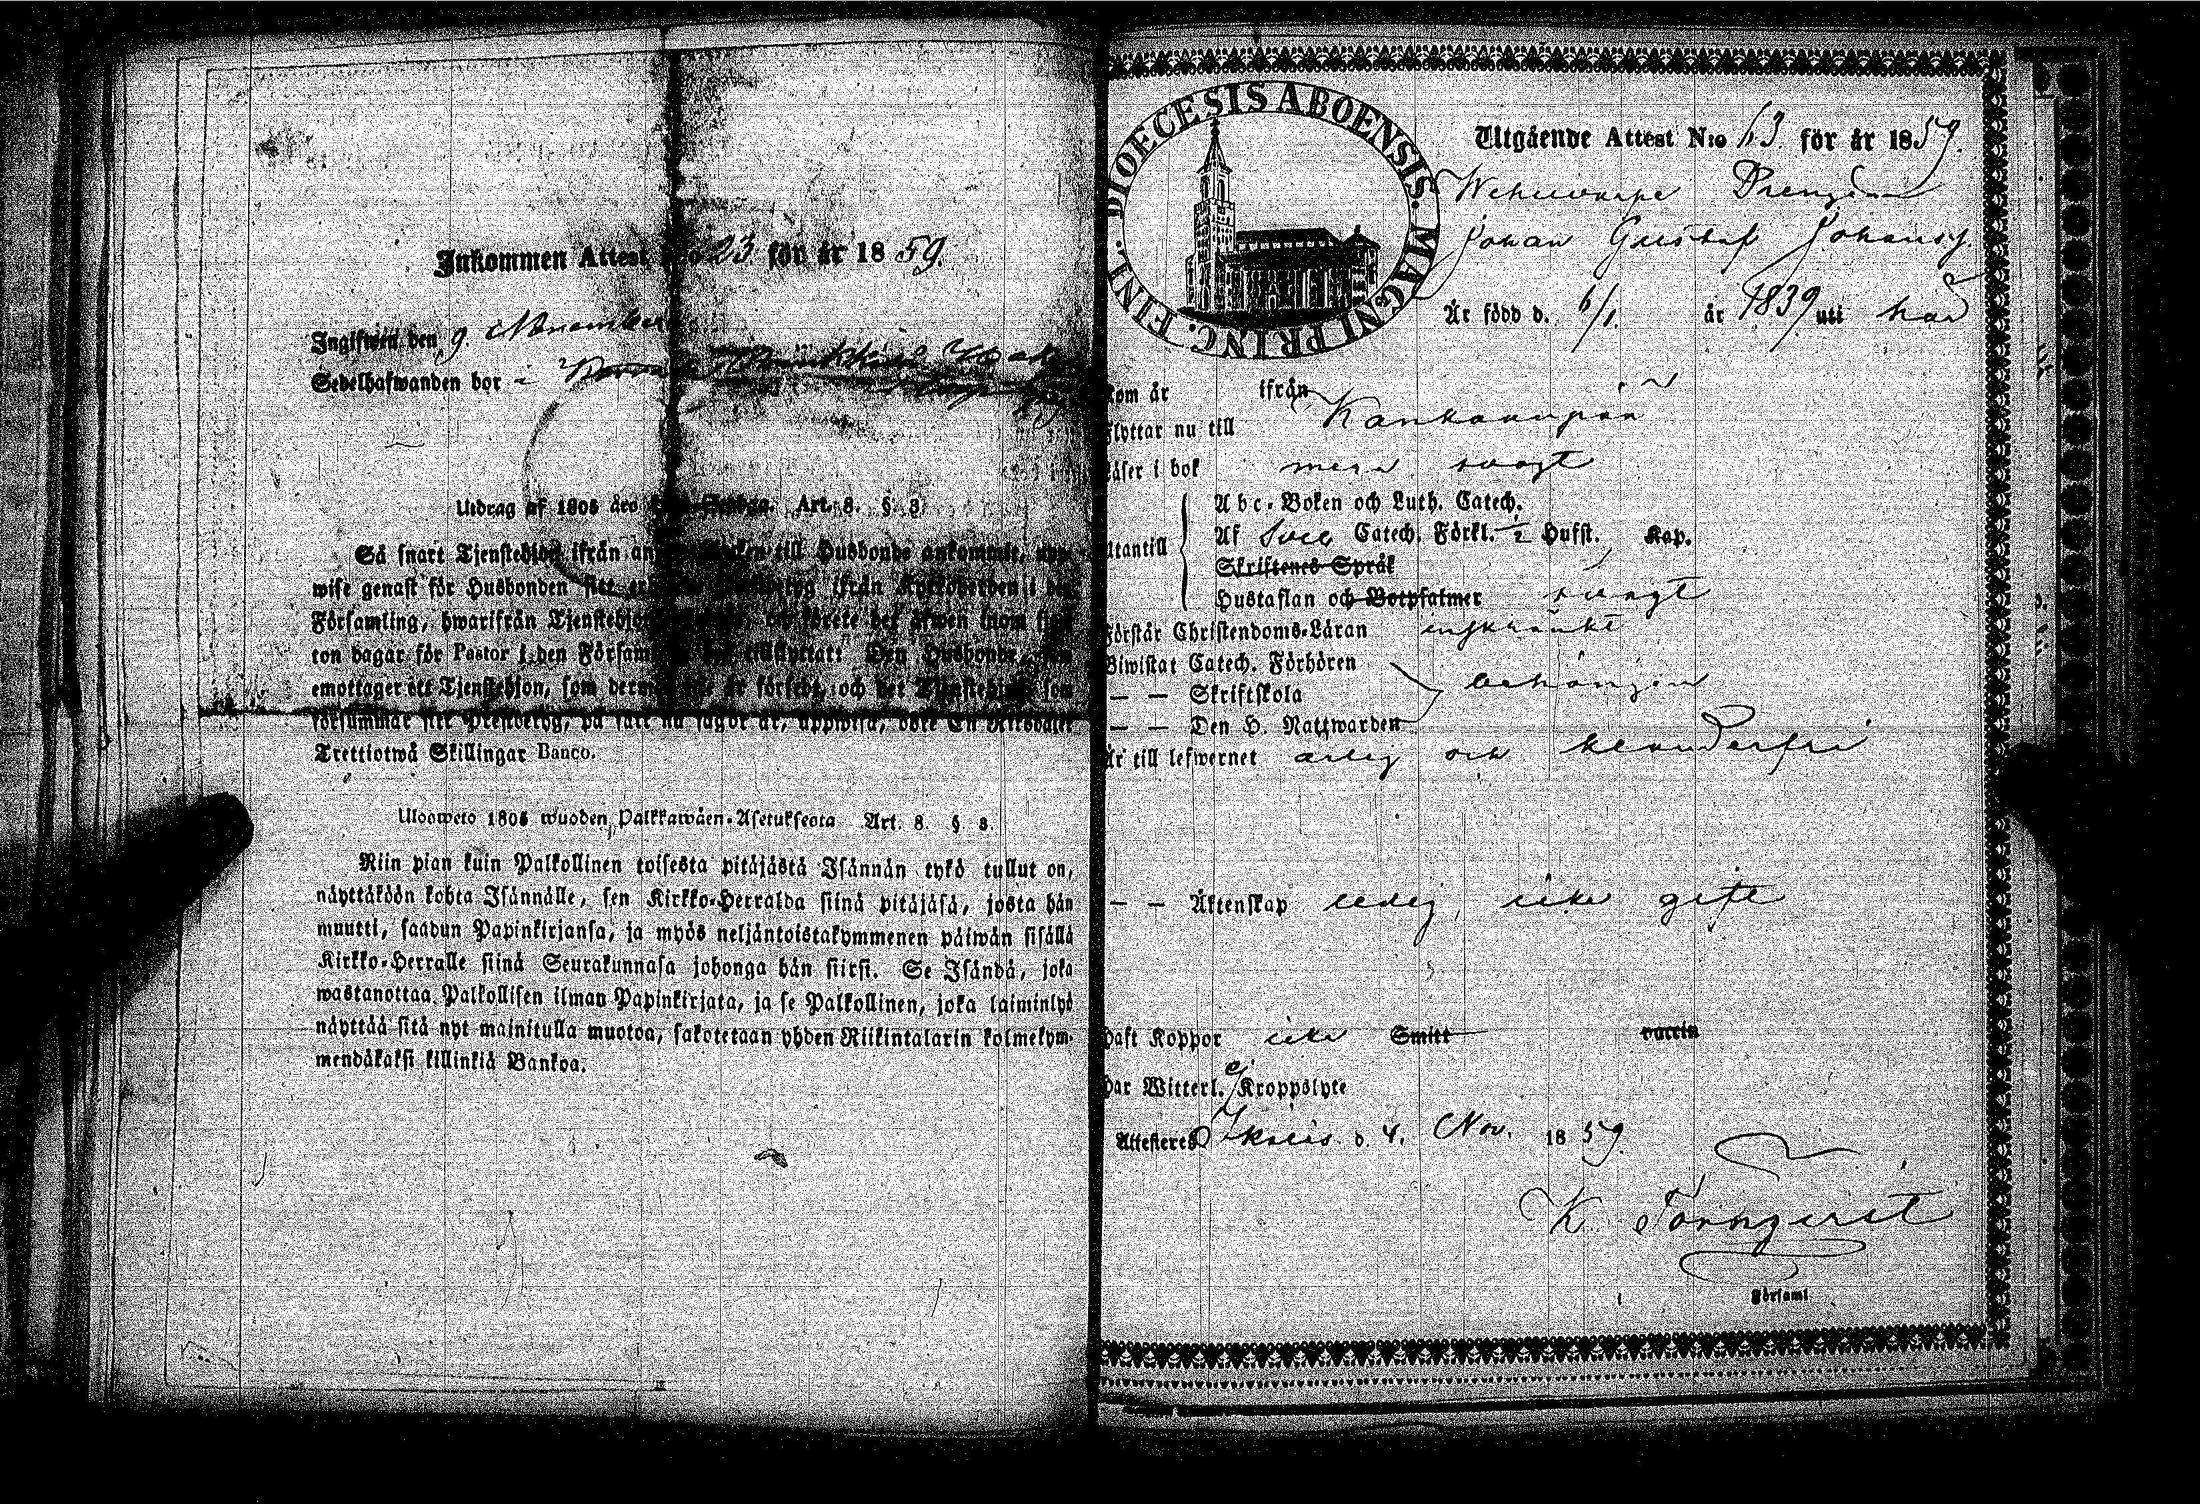 Inkommen Attest N:o 23 för år 1859.
Ingifwen den 9. November
Sedelhafwanden bor i
Utdrag af 1805 års Art. 8. § 3
Så snart Tjenstehjon ifrån till Husbonde ankommit, upp-
wise genast för Husbonden sitt ifrån Kyrkoherden i den
Församling, hwarifrån Tjenstehjon och förete det äfwen inom fjor-
ton dagar för Pastor i den Försam Den Husbonde, som
emottager ett Tjenstehjon, som derm är försedt, och det Tjenstehjon som
försummar sitt Prestbetyg, på sätt nu sagdt är, uppwisa, böte En Riksdaler
Trettiotwå Skillingar Banco.
Uloswеto 1805 wuoden Palkkawäen-Asetuksesta Art. 8. § 3.
Niin pian kuin Palkollinen toisesta pitäjästä Isännän tykö tullut on,
näyttäköön kohta Isännälle, sen Kirkko-Herralda siinä pitäjäsä, josta hän
muutti, saadun Papinkirjansa, ja myös neljäntoistakymmenen päiwän sisällä
Kirkko-Herralle siinä Seurakunnasa johonga hän siirsi. Se Isändä, joka
wastanottaa Palkollisen ilman Papinkirjata, ja se Palkollinen, joka laiminlyö
näyttää sitä nyt mainitulla muotoa, sakotetaan yhden Riikintalarin kolmekym-
mendäkaksi killinkiä Bankoa.
DIOECESIS ABOENSIS. MAGNI PRINC. FINL.
Utgående Attest N:o 63. för år 1859.
Drengen
Johan Gustaf Johanss.
Är född d. 6/1. år 1839 uti här
kom år ifrån
Flyttar nu till Kankaanpää
Läser i bok svagt
Abc-Boken och Luth. Catech.
Utantill Af Sveb Catech. Förkl. ½ Husst. Kap.
Skriftenes Språk
Hustaflan och Botpsalmer svagt
Förstår Christendoms-Läran inskränkt
Biwistat Catech. Förhören
— — Skriftskola behörigen
— — Den H. Nattwarden
Är till lefwernet ärlig och klanderfri
— — Äktenskap ledig, icke gift
Haft Koppor icke Smitt vaccin
Har Witterl. ej Kroppslyte
Attesteres Ikalis d. 4. Nov. 1859.
K Törnqvist
Församl.